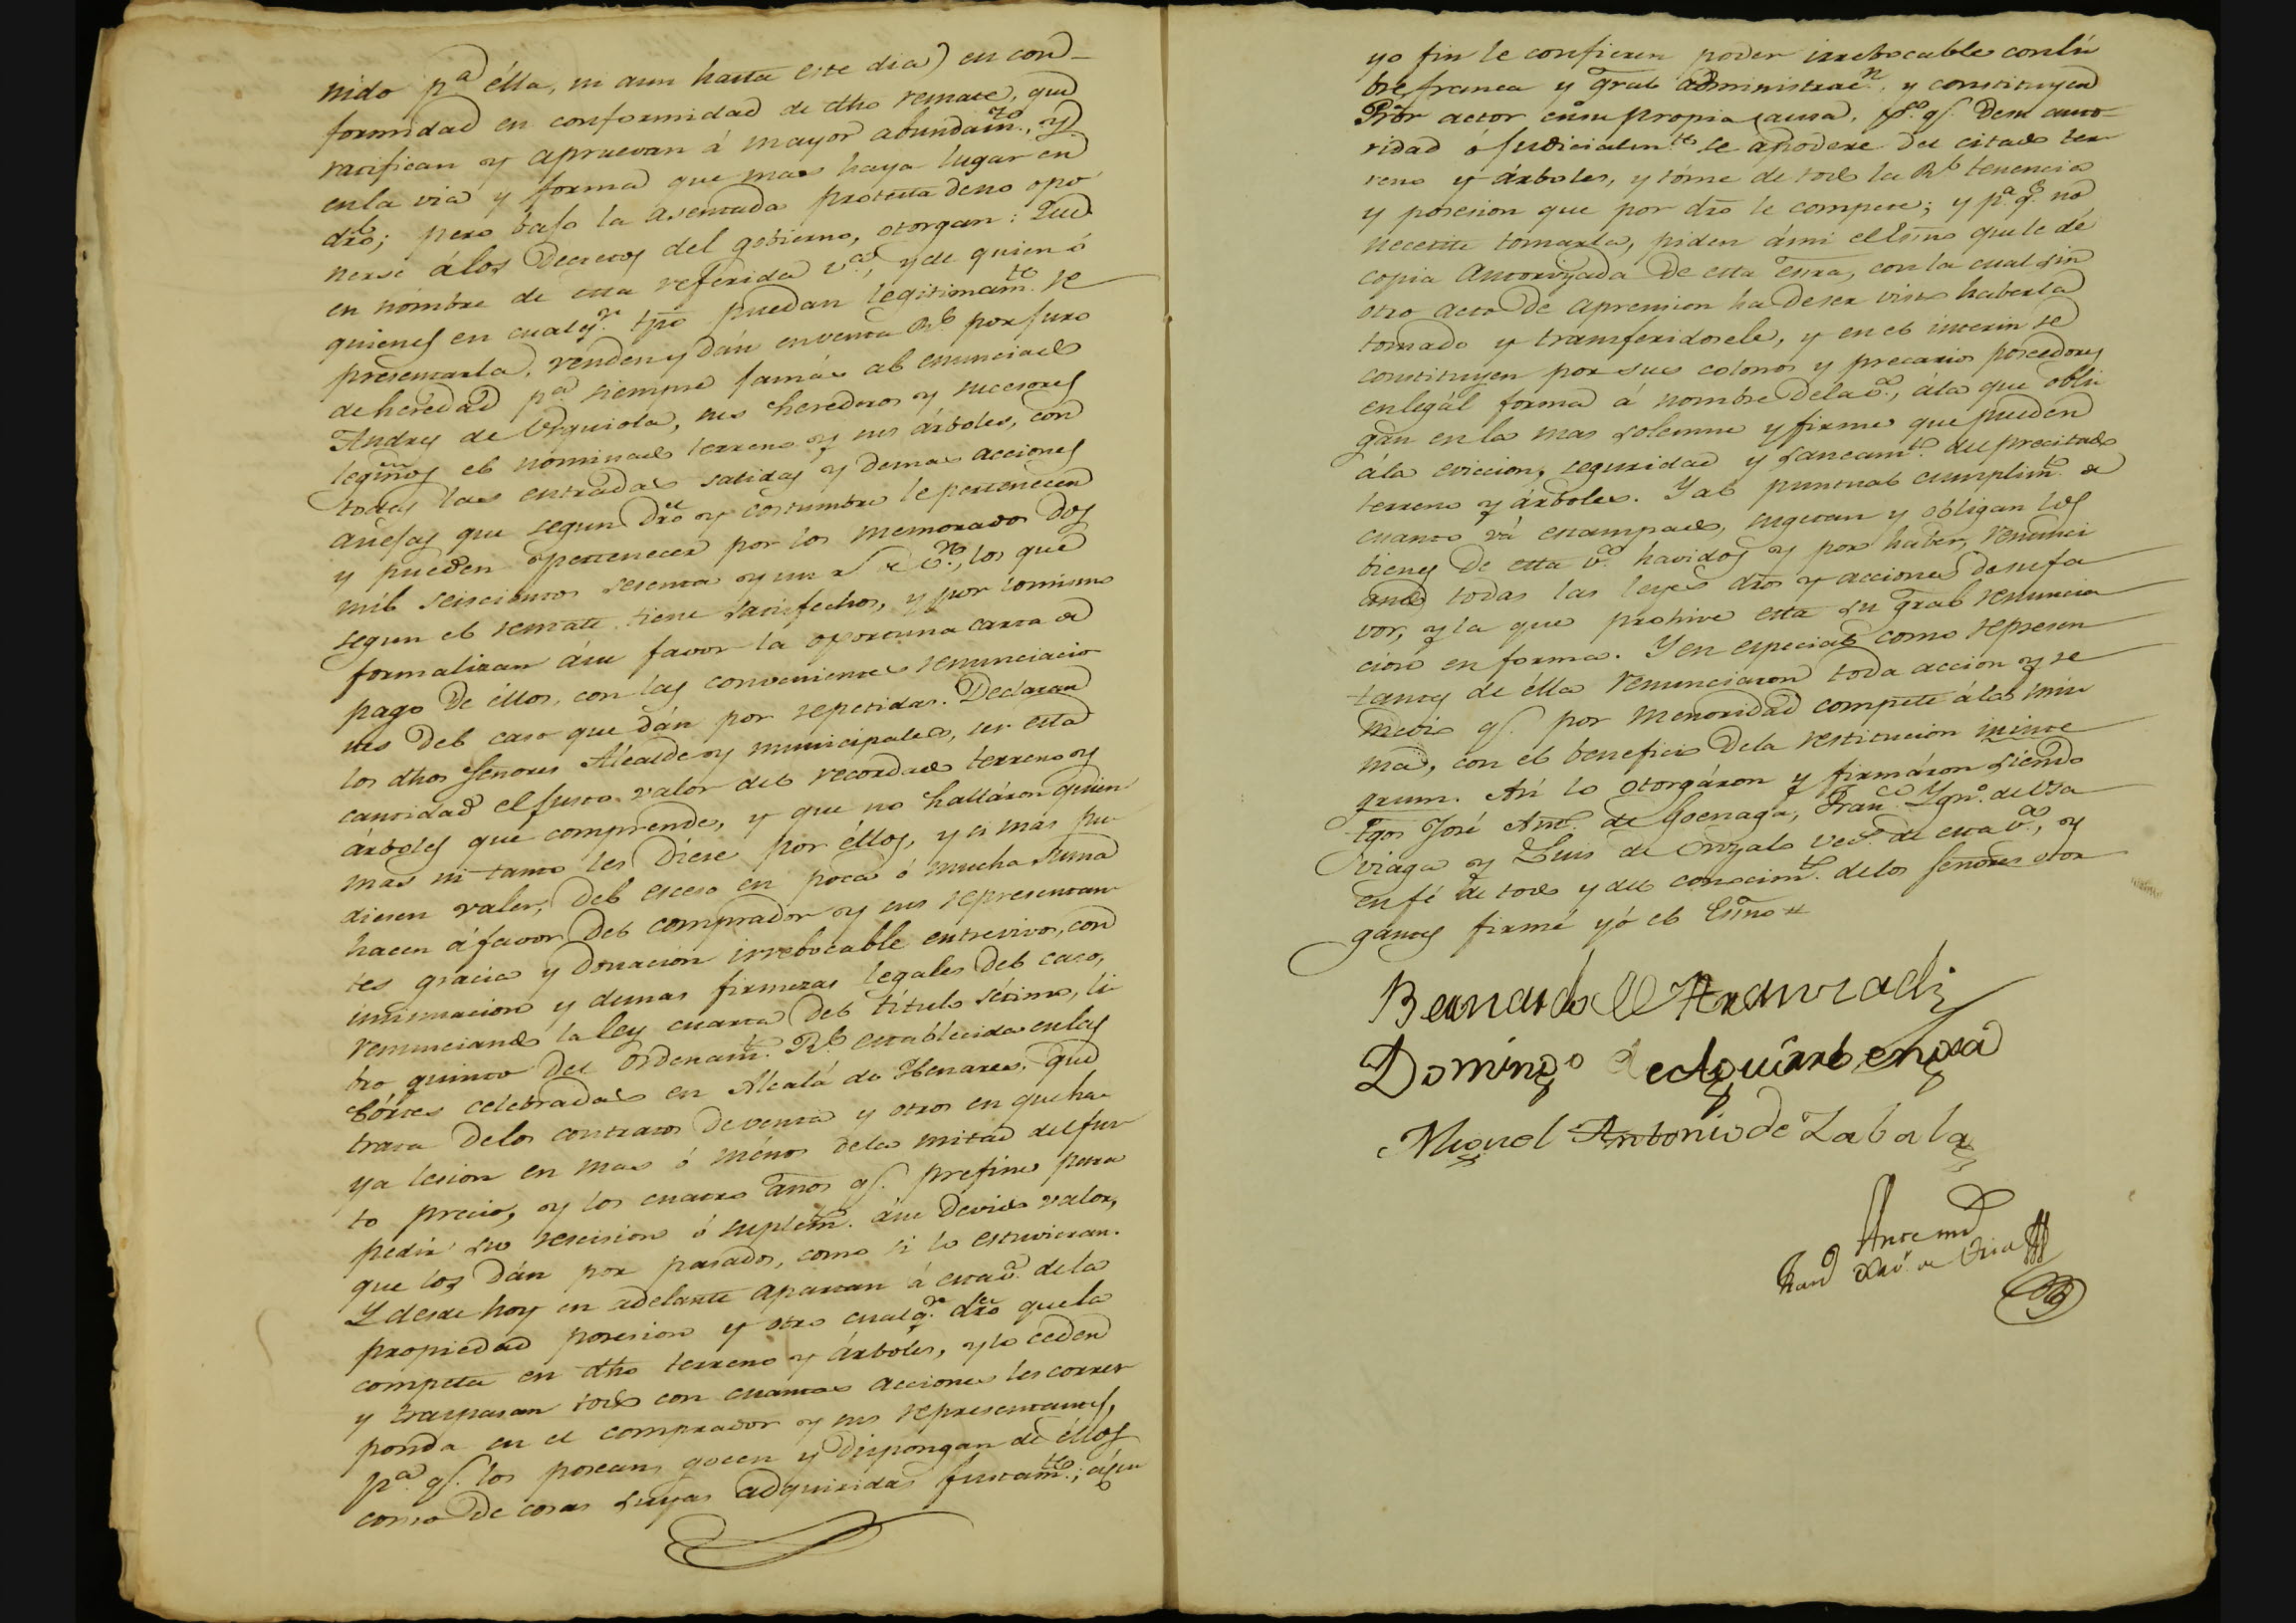 nido p.ª élla, ni aun hasta este dia) en con-
formidad en conformidad de dho remate, que
ratifican y apruevan á mayor abundam.to, y
en la via y forma que mas haya lugar en
dro; pero bajo la asentada protesta de no opo
nerse á los Decretos del gobierno, otorgan: Que
en nombre de esta referida v.ª, y de quien ó
quienes en cualq.r tpo puedan legitimam.te re
presentarla, venden y dán en venta R.l por juro
de heredad p.ª siempre jamás al enunciado
Andres de Urquiola, sus herederos y sucesores
legmos el nominado terreno y sus árboles, con
todas las entradas salidas y demas acciones
anejas que segun dro y costumbre le pertenecen
y pueden pertenecer por los memorados dos
mil seiscientos sesenta y un r.s v.n, los que
segun el remate tiene satisfechos, y por lo mismo
formalizan á su favor la oportuna carta de
pago de éllos, con las convenientes renunciacio
nes del caso que dán por repetidas. Declaran
los dhos Señores Alcalde y municipales, ser esta
cantidad el justo valor del recordado terreno y
árboles que comprende, y que no halláron quien
mas ni tanto les diese por éllos, y si más pu-
diesen valer, del esceso en poca ó mucha suma
hacen á favor del comprador y sus representan
tes gracia y donacion irrebocable entrevivos, con
insinuacion y demas firmezas legales del caso,
renunciando la ley cuarta del título sétimo, li
bro quinto del Ordenam.to R.l establecida en las
Córtes celebradas en Alcalá de Henares, que
trata de los contratos de venta y otros en que ha-
ya lesion en mas ó ménos de la mitad del jus
to precio, y los cuatro años q.e prefine para
pedir su rescision ó suplem.to á su devido valor,
que los dán por pasados, como si lo estuvieran.
Y desde hoy en adelante apartan á esta v.ª de la
propiedad posesion y otro cualq.r dro que la
competa en dho terreno y árboles, y lo ceden
y traspasan todo con cuantas acciones les corres
ponda en el comprador y sus representantes,
p.ª q.e los posean, gocen y dispongan de éllos
como de cosas suyas adquiridas justam.te; á cu
yo fin le confieren poder irrebocable con li
bre franca y gral administrac.n, y constituyen
Pror actor en su propia causa, p.ª q.e de su auto-
ridad ó judicialm.te se apodere del citado ter
reno y árboles, y tóme de todo la R.l tenencia
y posesion que por dro le compete; y p.ª q.e no
necesite tomarla, piden á mi el Esno que le dé
copia autorizada de esta esra, con la cual sin
otro acto de aprension ha de ser visto haberla
tomado y transferidosele, y en el interin se
constituyen por sus colonos y precarios poseedores
en legál forma á nombre de la v.ª, á la que obli
gan en la mas solemne y firme que pueden
á la eviccion, seguridad y saneam.to del precitado
terreno y árboles. Y al puntual cumplim.to de
cuanto vá estampado, sugetan y obligan los
bienes de esta v.ª havidos y por haber, renunci
ando todas las leyes dros y acciones de su fa
vor, y la que prohive esta su gral renuncia
cion en forma. Y en especial como represen
tantes de élla renunciaron toda accion y re
medio q.e por menoridad compete á la mis
ma, con el beneficio de la restitucion in inte
grum. Así lo otorgáron y firmáron siendo
tgos José Ant.º de Goenaga, Fran.co Ygn.º de Usa
viaga y Luis de Orvzalo vec.s de esta v.ª, y
en fé de todo y del conocim.to de los señores otor
gantes firmé yó el Esno
Bernardo de Aramvradi
Domingo de Aguirrebengoa
Miguel Antonio de Zabala
Ante mi